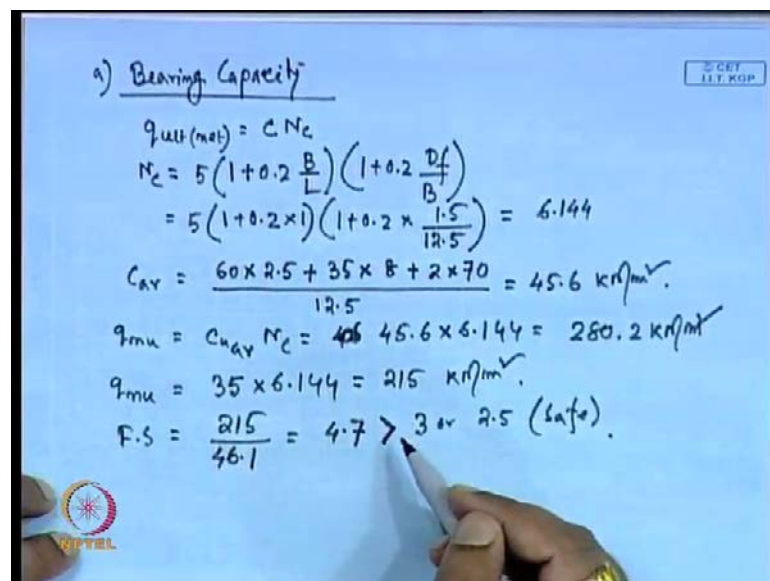 © CET
I.I.T. KGP
a) Bearing Capacity
qult(net) = C Nc
Nc = 5(1+0.2 B/L)(1+0.2 Df/B)
= 5(1+0.2×1)(1+0.2 × 1.5/12.5) = 6.144
Cav = (60×2.5 + 35×8 + 2×70)/12.5 = 45.6 kN/m².
qnu = Cuav Nc = 45.6×6.144 = 280.2 kN/m²
qnu = 35×6.144 = 215 kN/m².
F.S = 215/46.1 = 4.7 > 3 or 2.5 (Safe).
NPTEL